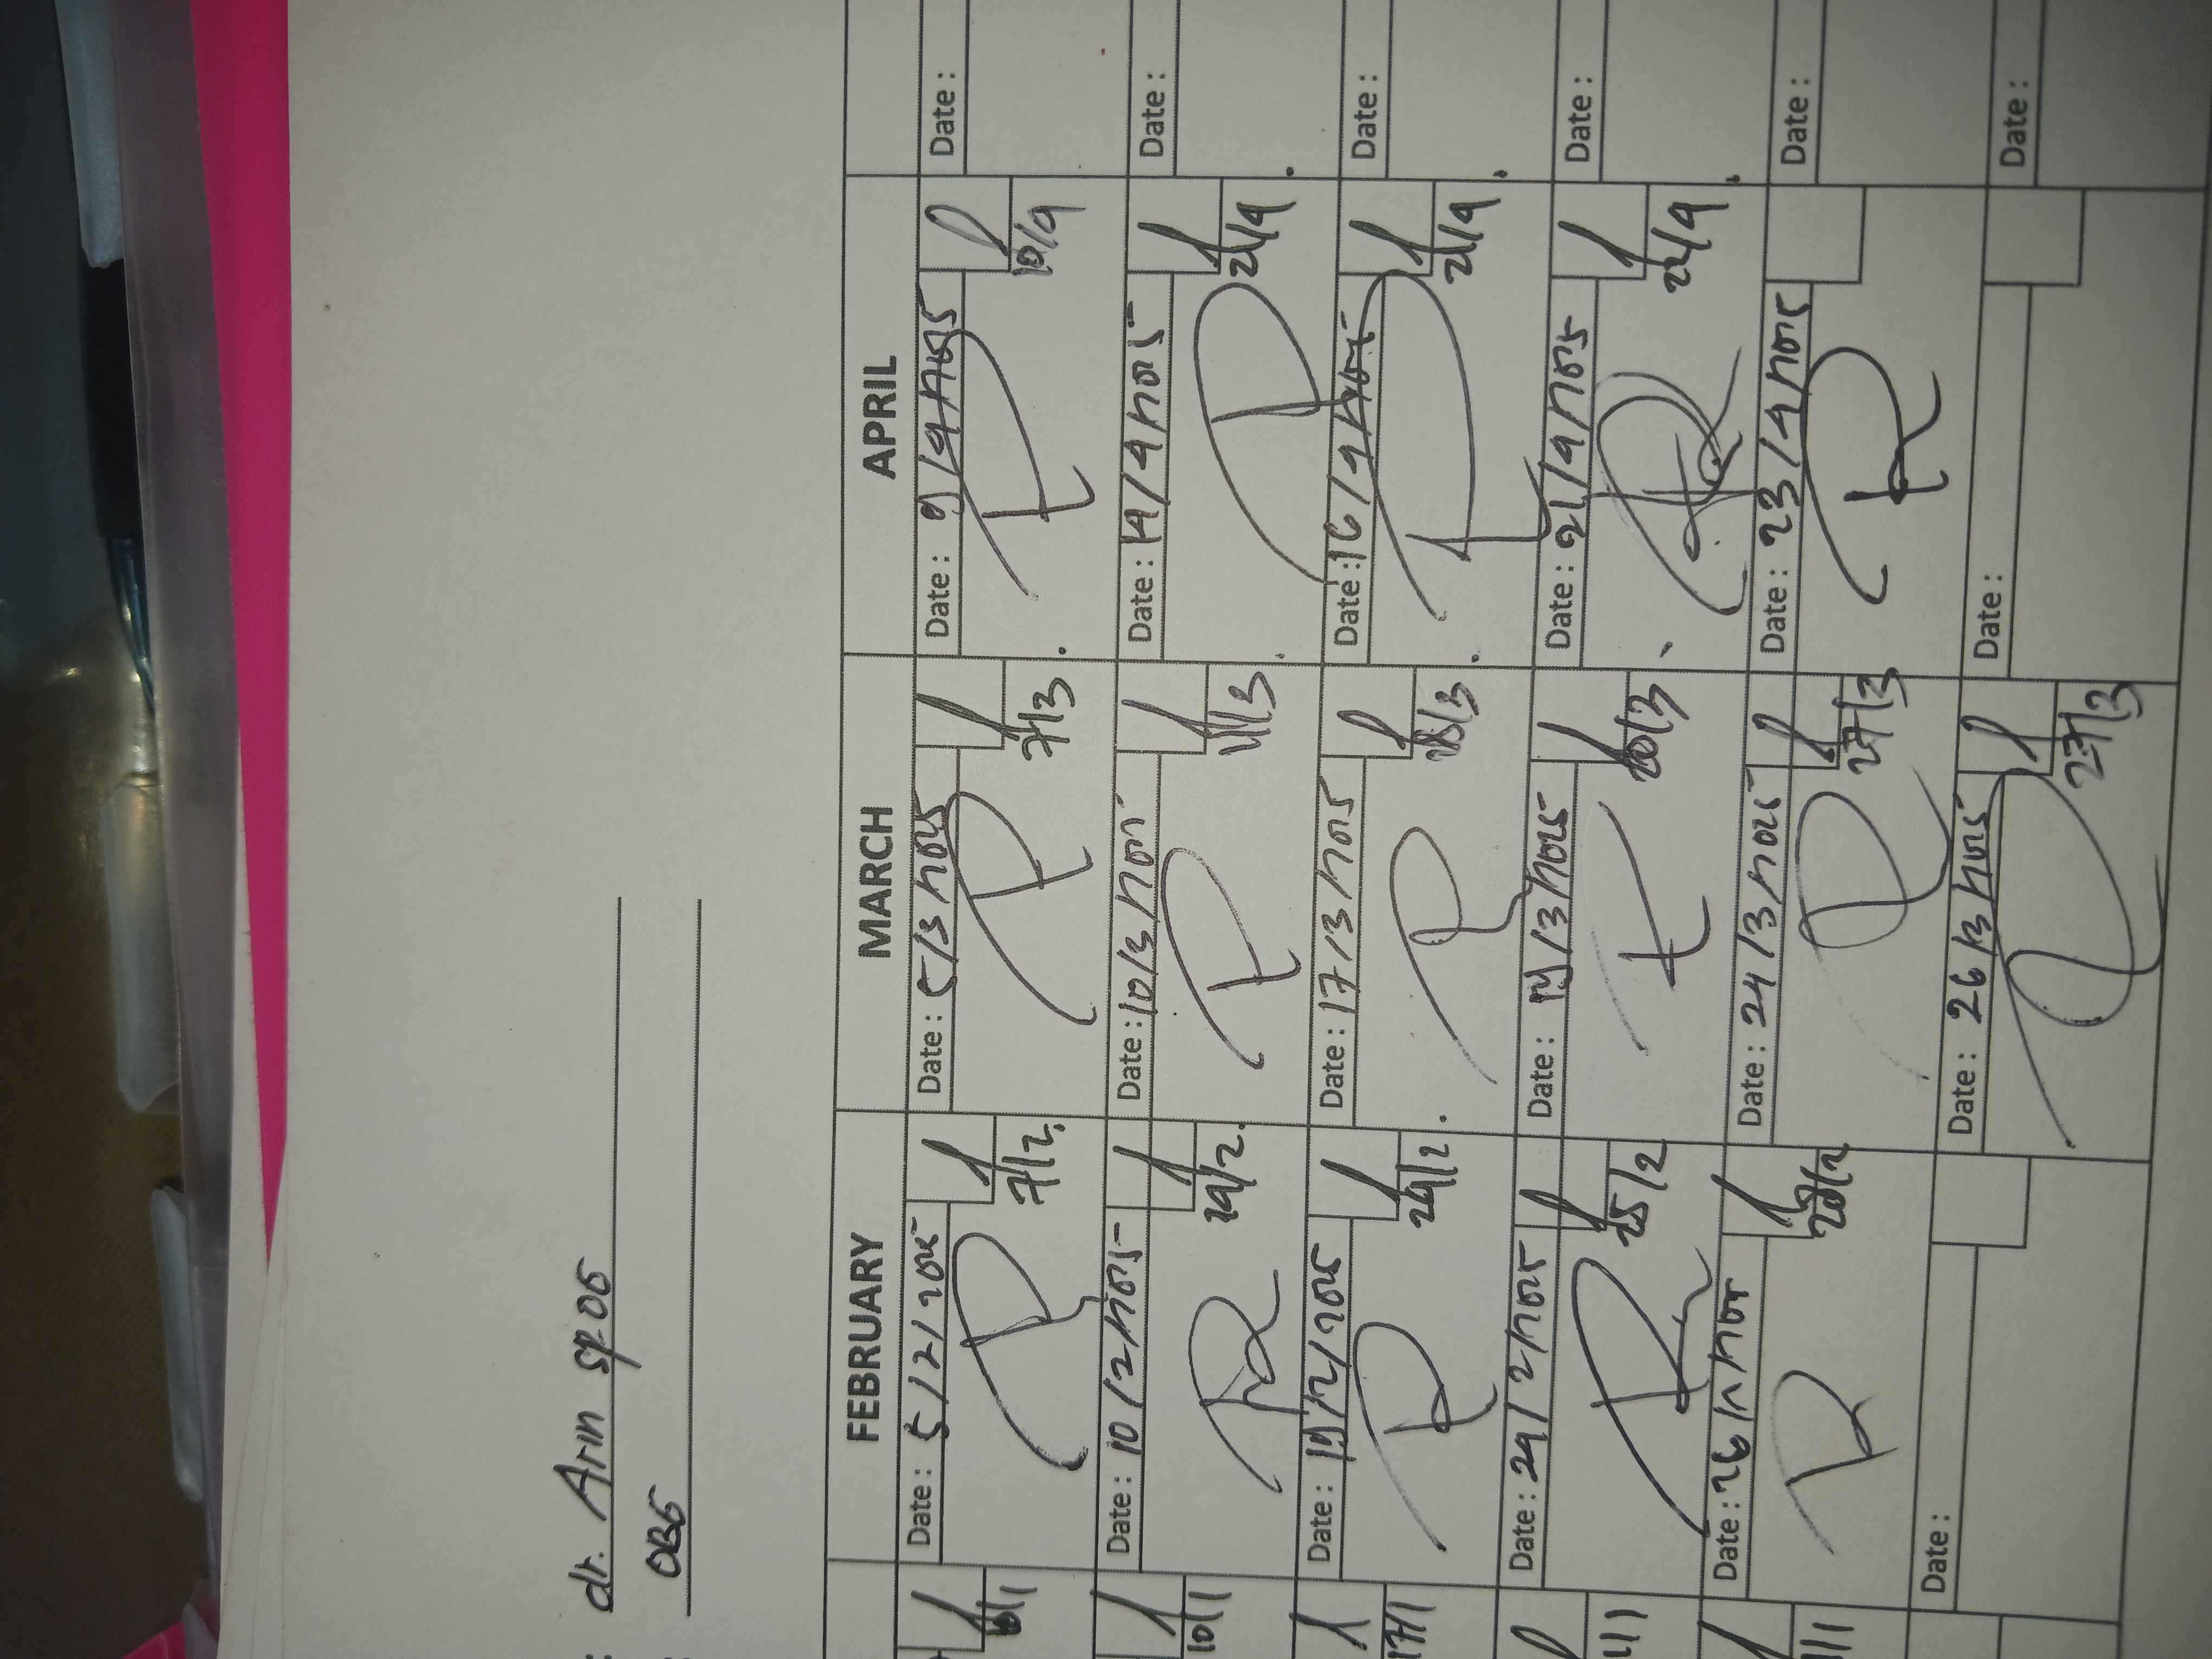 : dr. Arin SpOG
: OBG
FEBRUARY MARCH APRIL
6/1 Date : 5/2/2025 7/2 Date : 5/3/2025 7/3 Date : 9/4/2025 10/4 Date :
10/1 Date : 10/2/2025 14/2 Date : 10/3/2025 11/3 Date : 14/4/2025 21/4 Date :
17/1 Date : 19/2/2025 24/2 Date : 17/3/2025 18/3 Date : 16/4/2025 21/4 Date :
/1 Date : 24/2/2025 25/2 Date : 19/3/2025 20/3 Date : 21/4/2025 22/4 Date :
/1 Date : 26/2/2025 28/2 Date : 24/3/2025 27/3 Date : 23/4/2025 Date :
Date : Date : 26/3/2025 27/3 Date : Date :